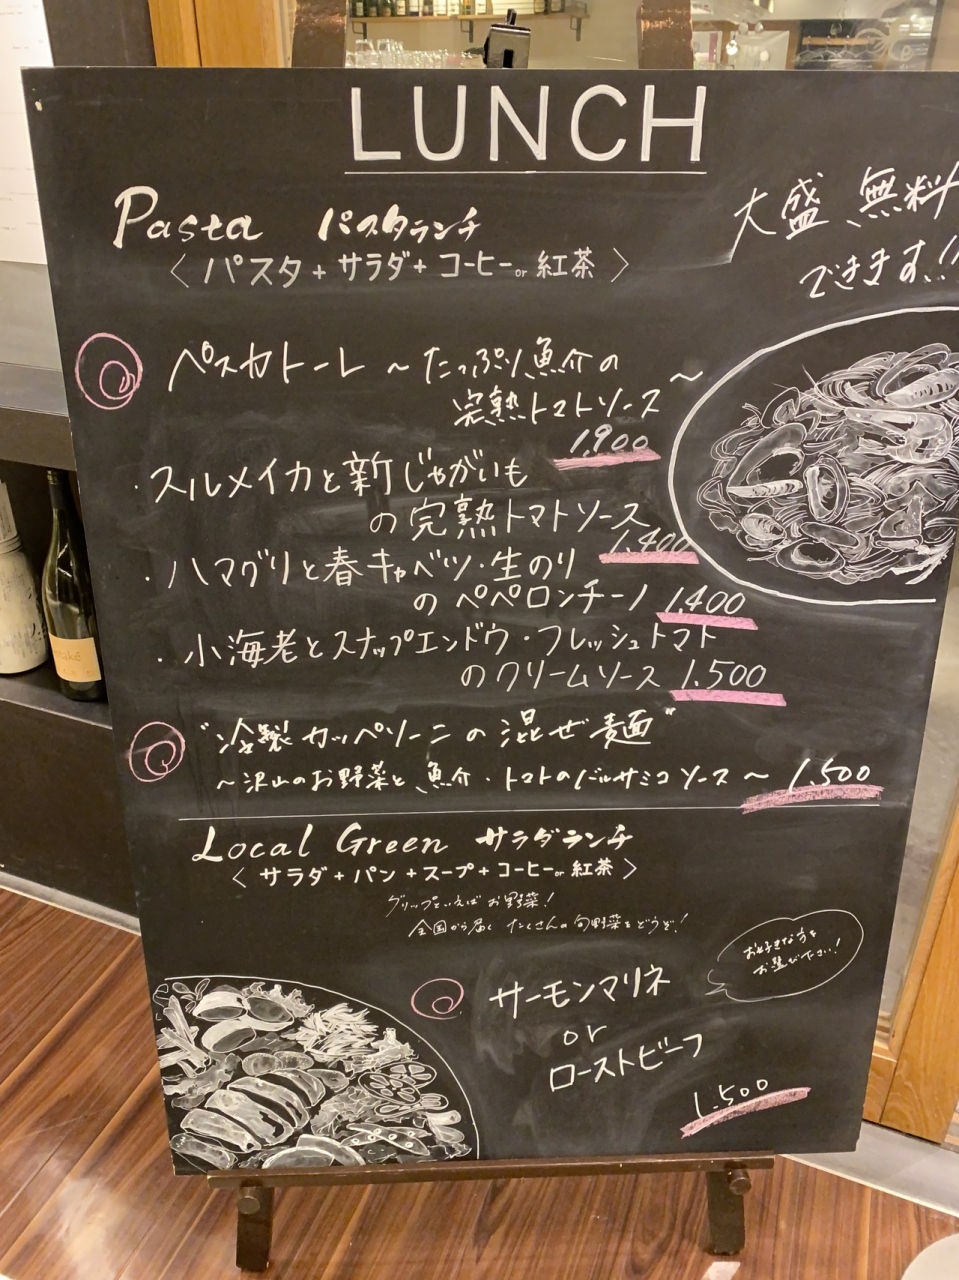 LUNCH
Pasta パスタランチ
〈パスタ+サラダ+コーヒーor紅茶〉
大盛 無料
できます!!
ペスカトーレ ~たっぷり魚介の
完熟トマトソース~
1,900
・スルメイカと新じゃがいも
の完熟トマトソース
1,400
・ハマグリと春キャベツ・生のり
のペペロンチーノ 1,400
・小海老とスナップエンドウ・フレッシュトマト
のクリームソース 1.500
"冷製カッペリーニの混ぜ麺"
~沢山のお野菜と魚介・トマトのバルサミコソース~ 1.500
Local Green サラダランチ
〈サラダ+パン+スープ+コーヒーor紅茶〉
グリップといえばお野菜!
全国から届くたくさんの旬野菜をどうぞ!
お好きな方を
お選び下さい!
サーモンマリネ
or
ローストビーフ
1.500